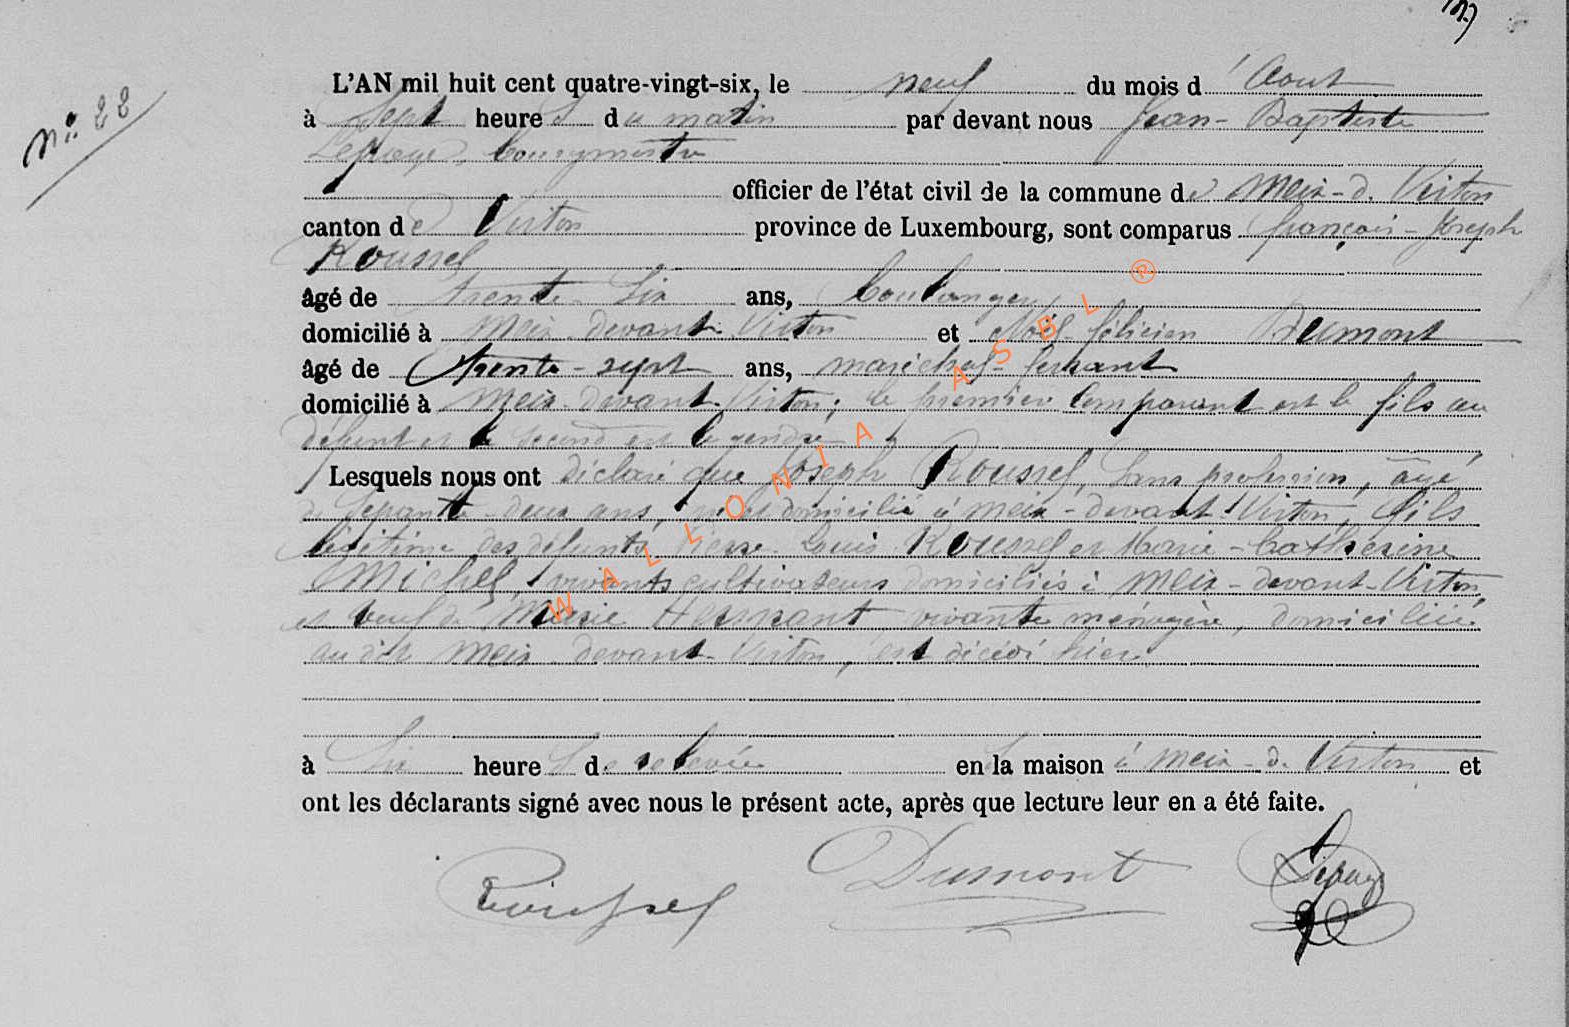 nº 22
L'AN mil huit cent quatre-vingt-six, le neuf du mois d'Aout
à Sept heures du matin par devant nous Jean-Baptiste
Lepage, bourgmestre
officier de l'état civil de la commune de Meix-d. Virton
canton de Virton province de Luxembourg, sont comparus françois-Joseph
Roussel
âgé de trente-six ans, boulanger,
domicilié à Meix-devant-Virton et Noël-félicien Dumont
âgé de trente-sept ans, maréchal-ferrant
domicilié à Meix-devant-Virton; le premier comparant est le fils au
défunt et le second est le gendre
Lesquels nous ont déclaré que Joseph Roussel, sans profession, âgé
de Septante-deux ans, domicilié à Meix-devant-Virton, fils
légitime des défunts Pierre-Louis Roussel et Marie-Cathérine
Michel, vivants cultivateurs domiciliés à Meix-devant-Virton,
et veuf de Marie Hermant vivante ménagère, domiciliée
au dit Meix-devant-Virton, est décédé hier
à six heures de relevée en la maison à Meix-d. Virton et
ont les déclarants signé avec nous le présent acte, après que lecture leur en a été faite.
Roussel Dumont Lepage
WALLONIA ASBL ®